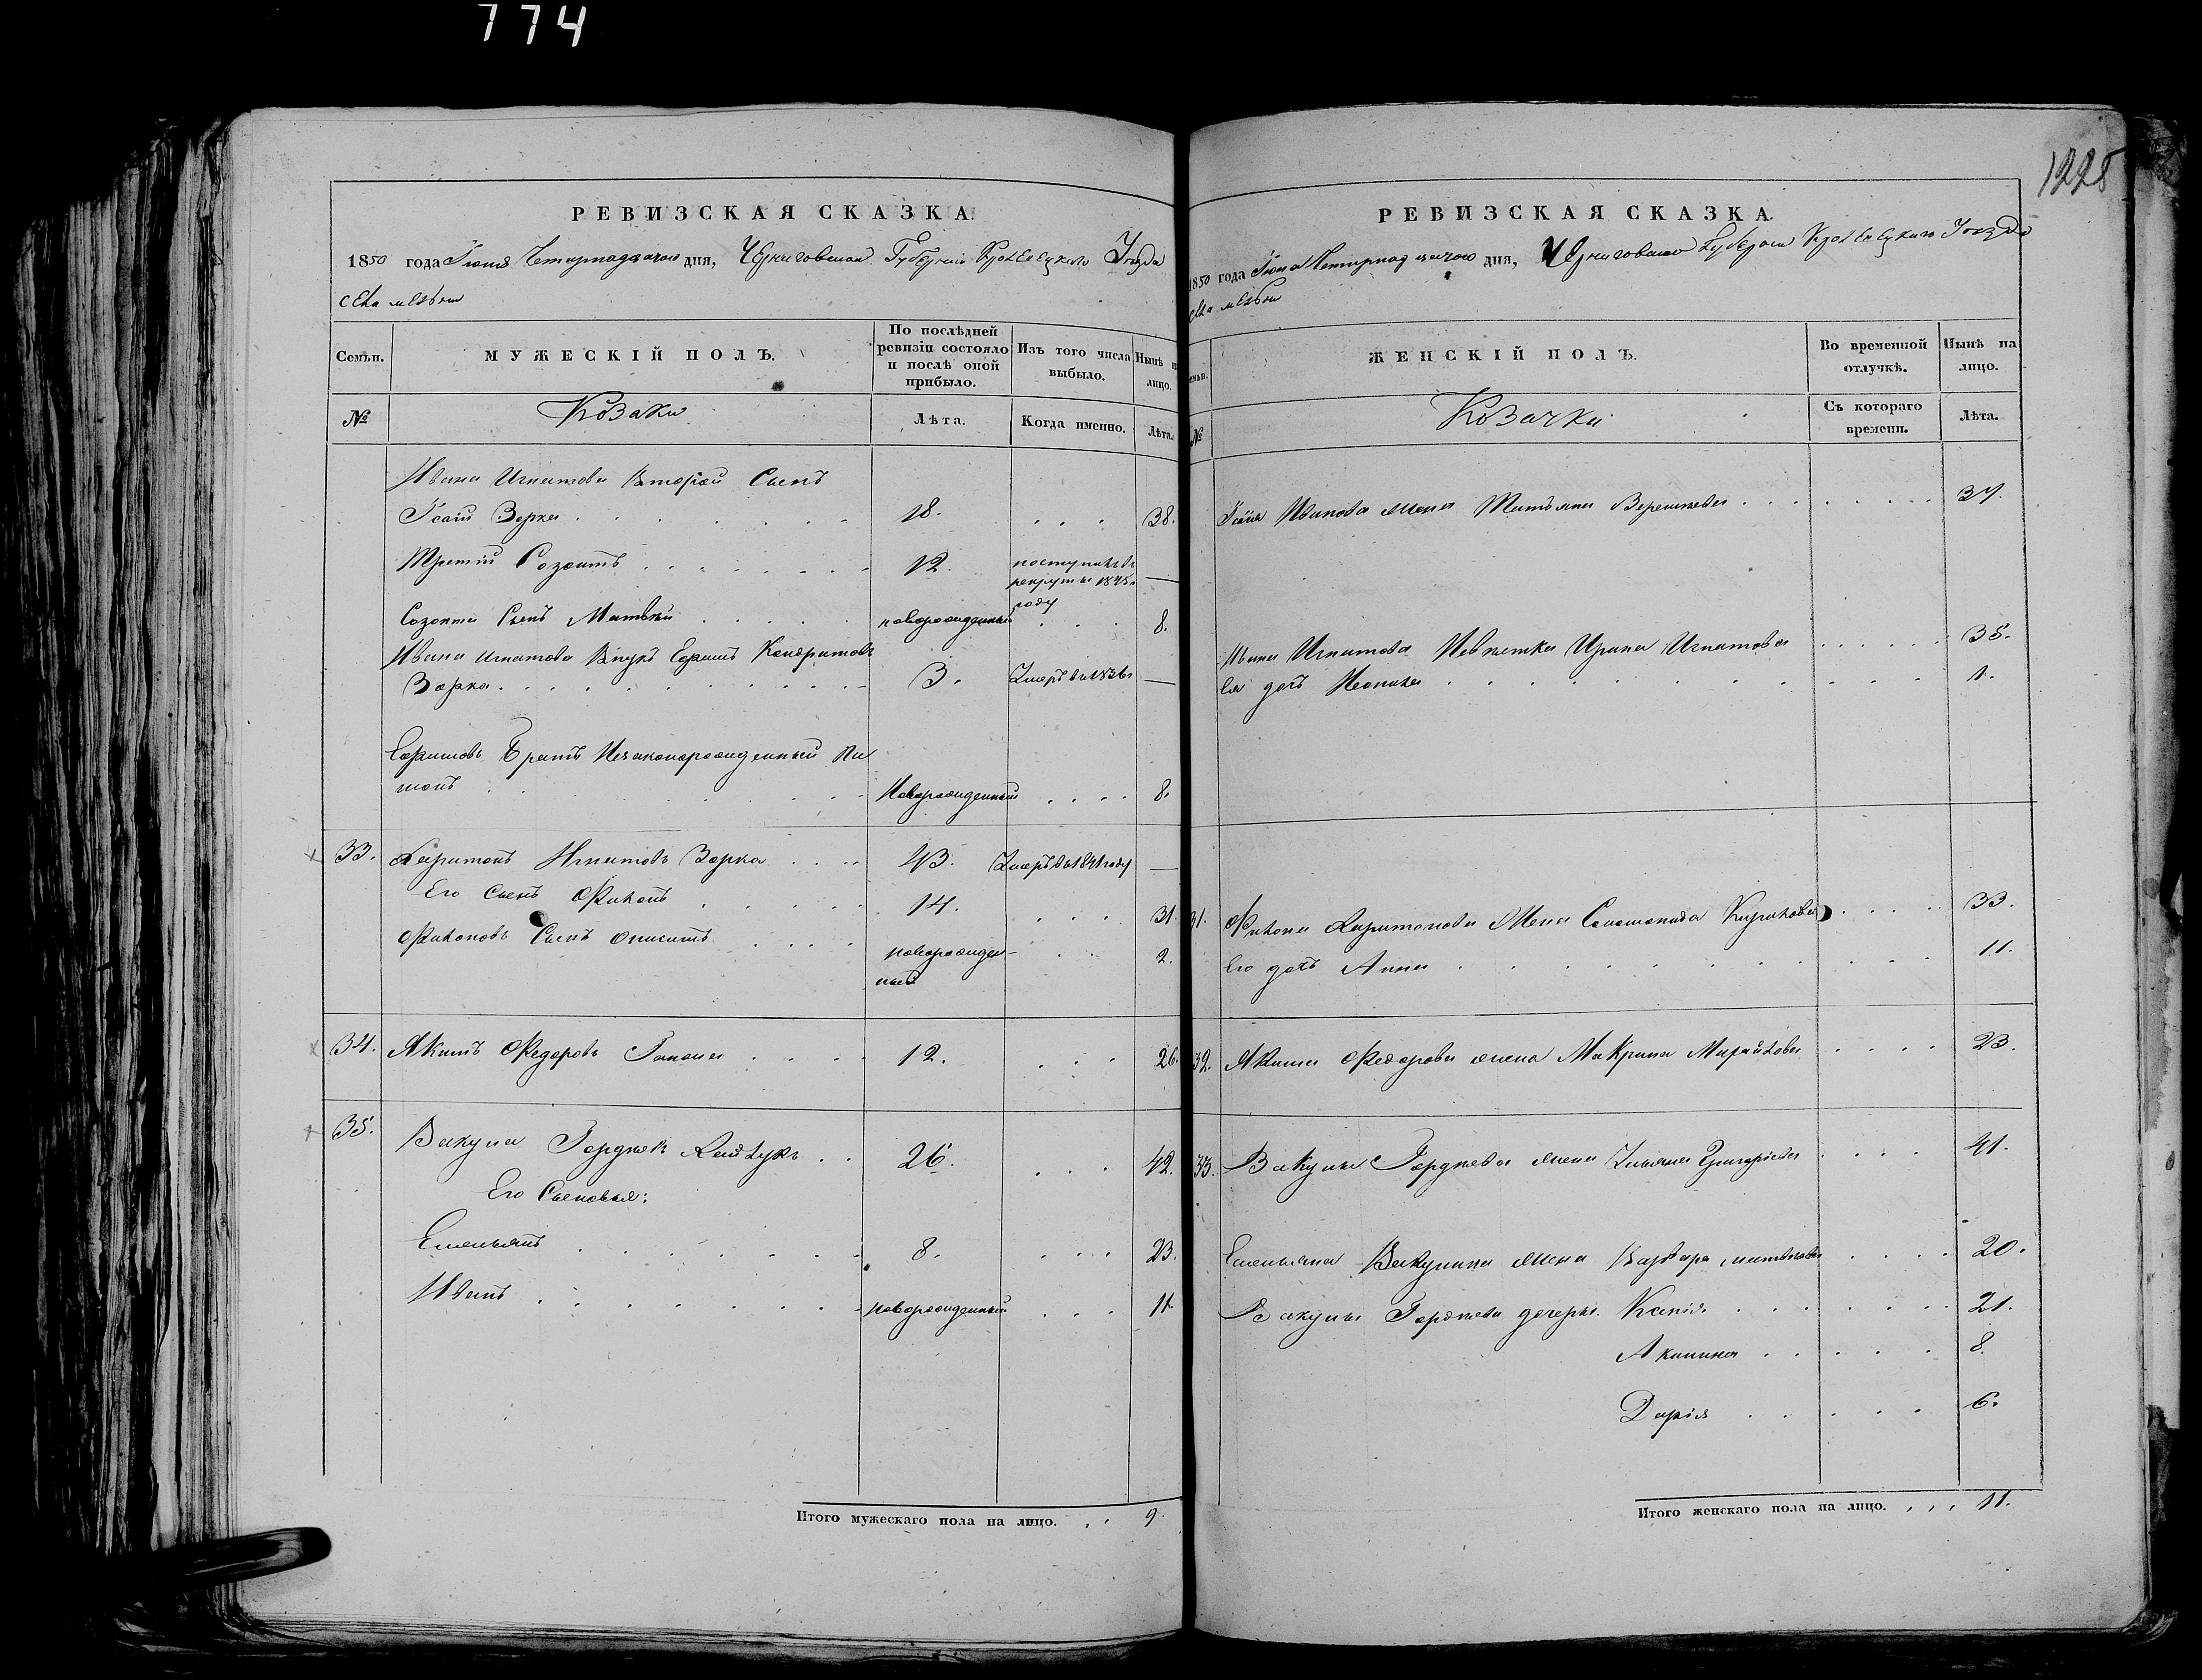 774
1228
РЕВИЗСКАЯ СКАЗКА.
1850 года Іюня Четырнадцатого дня, Черниговской Губерніи Кролевецкаго Уезда
села
Семьи.
МУЖЕСКІЙ ПОЛЪ.
По послѣдней ревизіи состояло и послѣ оной прибыло.
Изъ того числа выбыло.
Нынѣ на лицо.
№
Козаки
Лѣта.
Когда именно.
Лѣта.
Ивана Игнатова Второй Сынъ
Ісаій Зорка 18. 38.
Третій Созонтъ 12. поступилъ въ
рекруты 1845
году
Созонта Сынъ Матвѣй новорожденный 8.
Ивана Игнатова Внукъ Ефимъ Кондратовъ
Зорка 3. Умеръ въ —
Ефимовъ Братъ Незаконорожденный Пи
менъ новорожденный 8.
33. Харитонъ Игнатовъ Зорка 43. Умеръ въ 1841 году —
Его Сынъ Филонъ 14. 31.
Филоновъ Сынъ новорожден-
ный 2.
34. Якимъ Федоровъ 12. 26.
35. Вакула Гордѣевъ 26. 42.
Его Сыновья:
Емельянъ 8. 23.
Иванъ новорожденный 11
Итого мужескаго пола на лицо. 9.
РЕВИЗСКАЯ СКАЗКА.
1850 года Іюня Четырнадцатого дня, Черниговской Губерніи Кролевецкаго Уезда
села
Семьи.
ЖЕНСКІЙ ПОЛЪ.
Во временной отлучкѣ.
Нынѣ на лицо.
№
Козачки
Съ котораго времени.
Лѣта.
Ісаія Иванова жена Татьяна 37.
Ивана Игнатова Невѣстка Ирина Игнатова 35.
Ея дочь 1.
31. Филона Харитонова Жена Соломонида Кирилова 33.
Его дочь Анна 11.
32. Якима Федорова жена Макрина 23.
33. Вакулы Гордѣева жена Ульяна Григорьева 41.
Емельяна Вакулина жена Варвара 20.
Вакулы Гордѣева дочери. Ксенія 21.
Акилина 8.
Дарія 6.
Итого женскаго пола на лицо. 11.